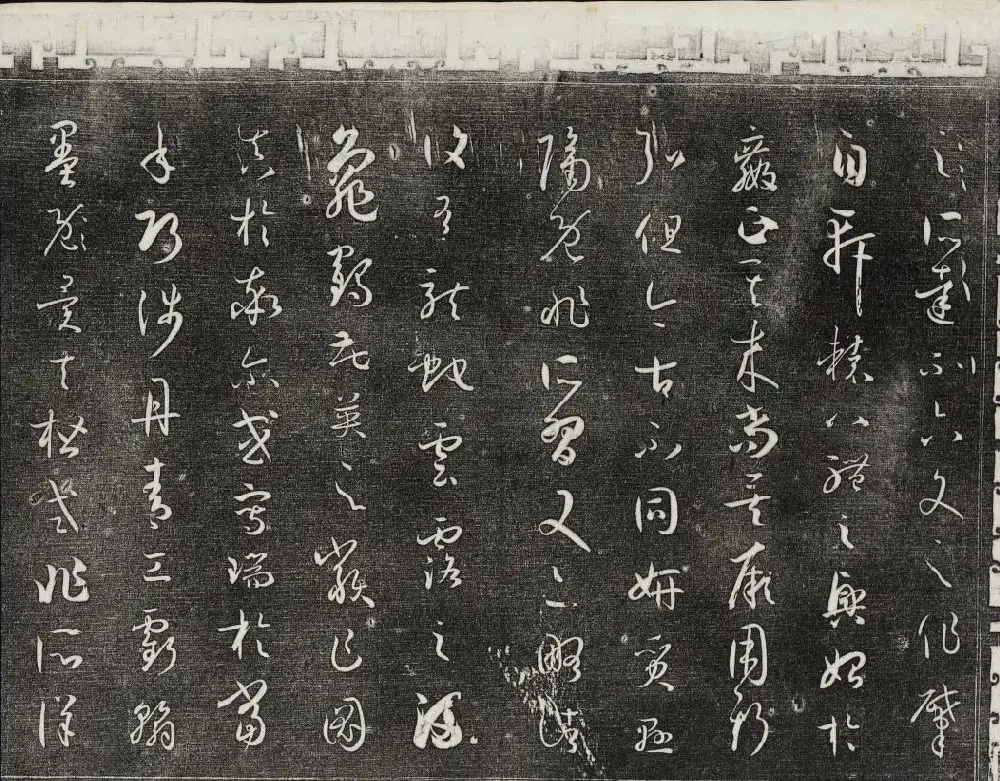 六文之作肇
自軒轅八體之興始於
嬴政其來尚矣厥用斯
弘但今古不同妍質懸
隔既非所習又亦略諸
復有龍蛇雲露之流
龜鶴花英之類乍圖
真於率爾或寫瑞於當
年巧涉丹青工虧翰
墨異夫楷式非所詳